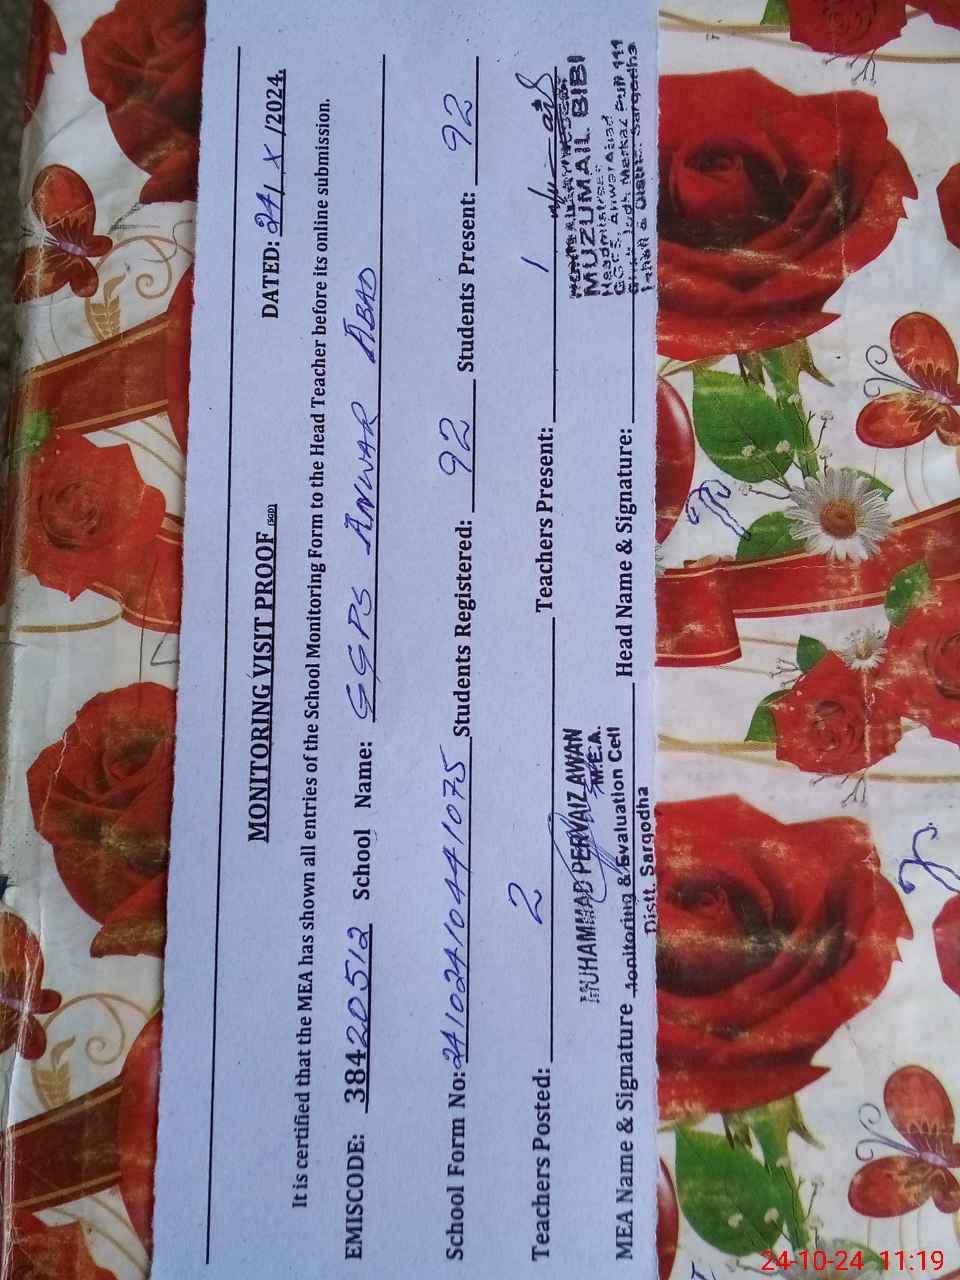 MONITORING VISIT PROOF (SGD)
DATED: 24/ X /2024.
It is certified that the MEA has shown all entries of the School Monitoring Form to the Head Teacher before its online submission.
EMISCODE: 38420512 School Name: GGPS ANWAR ABAD
School Form No: 241024104441075 Students Registered: 92 Students Present: 92
Teachers Posted: 2 Teachers Present: 1
MEA Name & Signature Head Name & Signature:
MUHAMMAD PERVAIZ AWAN
M.E.A.
Monitoring & Evaluation Cell
Distt. Sargodha
MUZUMAIL BIBI
Headmistress
GGPS, Anwar Abad
24-10-24 11:19